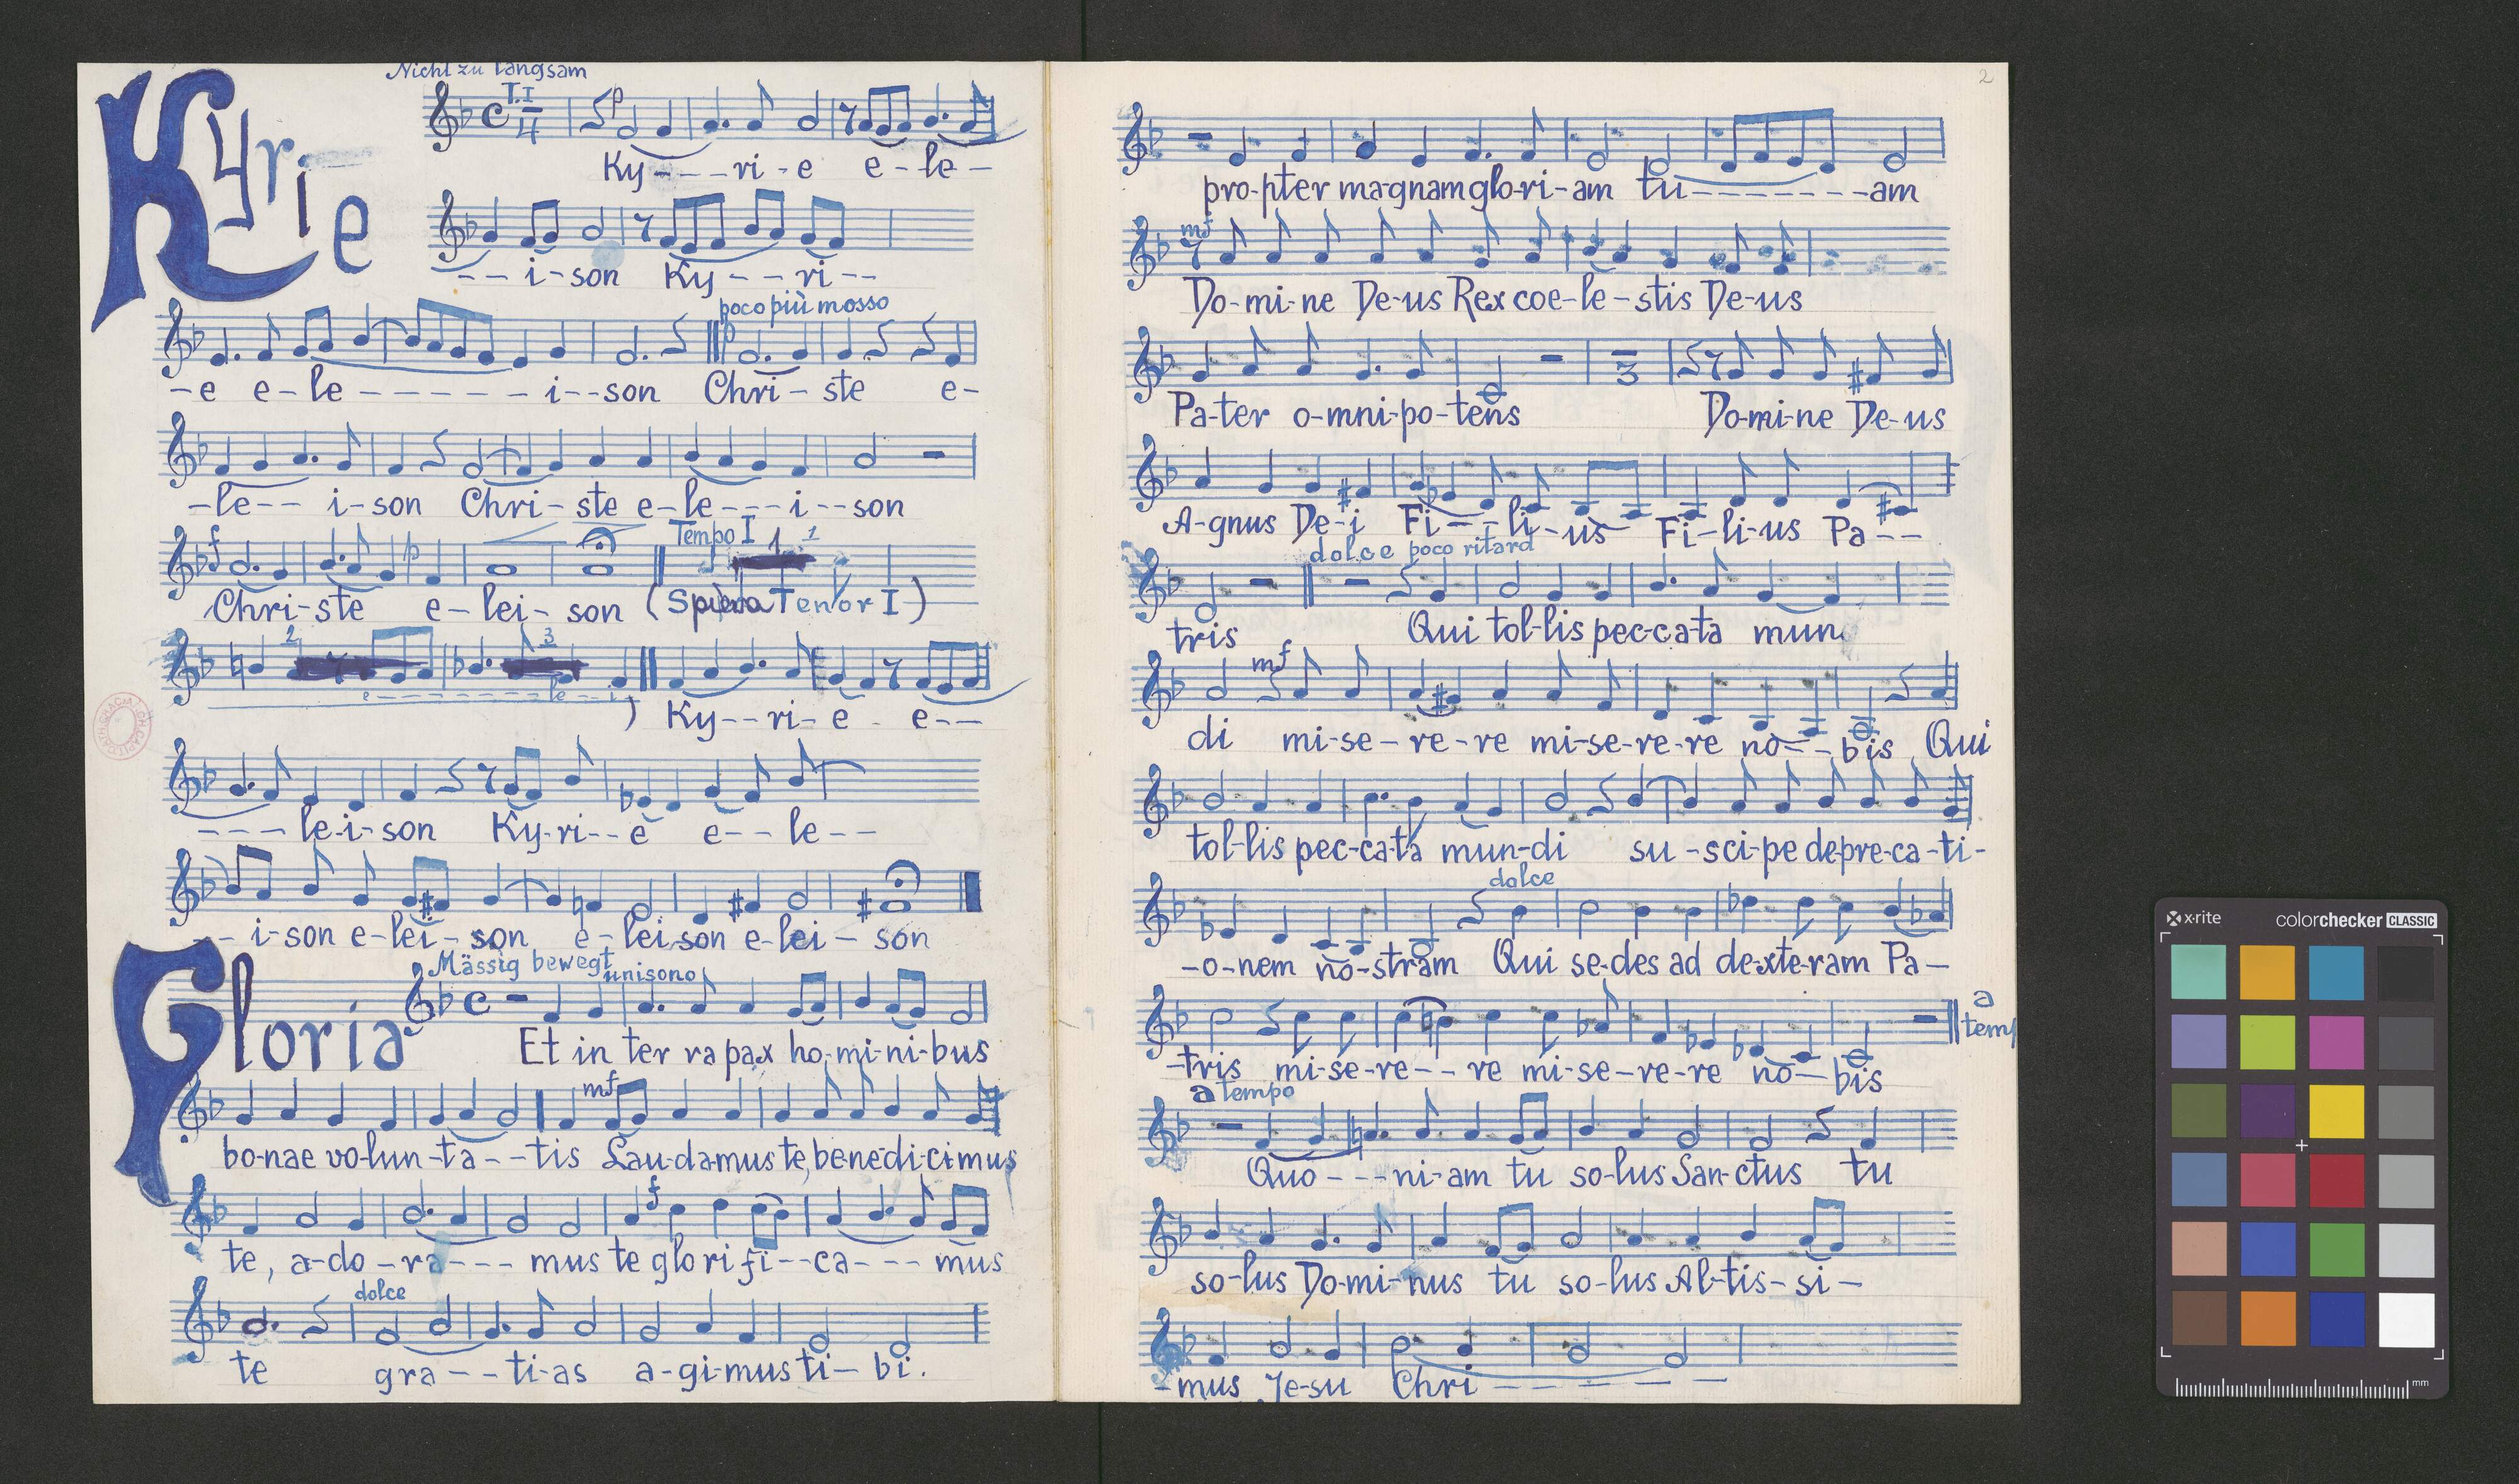 Kyrie
Nicht zu langsam
T.I
4
p
Ky---ri-e e--le-
--i-son Ky---ri--
poco più mosso
p
-e e-le------i--son Chri-ste e-
-le-- i-son Chri-ste e-le---i--son
f p Tempo I 1 1
Chri-ste e-lei-son (Tenor I)
2 3
e--------le--i
) Ky--ri-e e--
---le-i-son Ky-ri--e e--le--
--i-son e-lei-son e-lei-son e-lei-son
Gloria
Mässig bewegt
unisono
Et in ter ra pax ho-mi-ni-bus
mf
bo-nae vo-lun-ta--tis Lau-da-mus te, be-ne-di-ci-mus
f
te, a-do-ra---mus te glo ri fi--ca---mus
dolce
te gra--ti-as a-gi-mus ti-bi.
2
pro-pter ma-gnam glo-ri-am tu-------am
mf
Do-mi-ne De-us Rex coe-le-stis De-us
3
Pa-ter o-mni-po-tens Do-mi-ne De-us
A-gnus De-i Fi--li-us Fi-li-us Pa--
dolce poco ritard
tris Qui tol-lis pec-ca-ta mun
mf
di mi-se-re-re mi-se-re-re no--bis Qui
tol-lis pec-ca-ta mun-di su-sci-pe de-pre-ca-ti-
dolce
-o-nem no-stram Qui se-des ad de-xte-ram Pa-
a
temp
-tris mi-se-re--re mi-se-re-re no-bis
a tempo
Quo---ni-am tu so-lus San-ctus tu
so-lus Do-mi-nus tu so-lus Al-tis-si-
-mus Je-su Chri------
x-rite colorchecker CLASSIC
mm